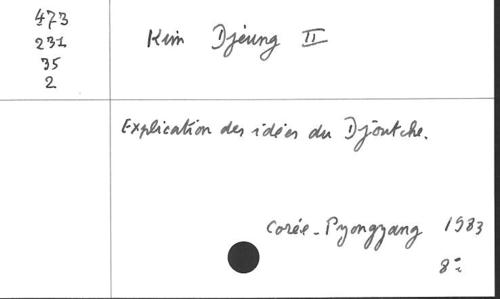 473
231
35
2
Kim Djeung II
Explication des idées du Djoutche.
Corée - Pyongyang 1983
8°